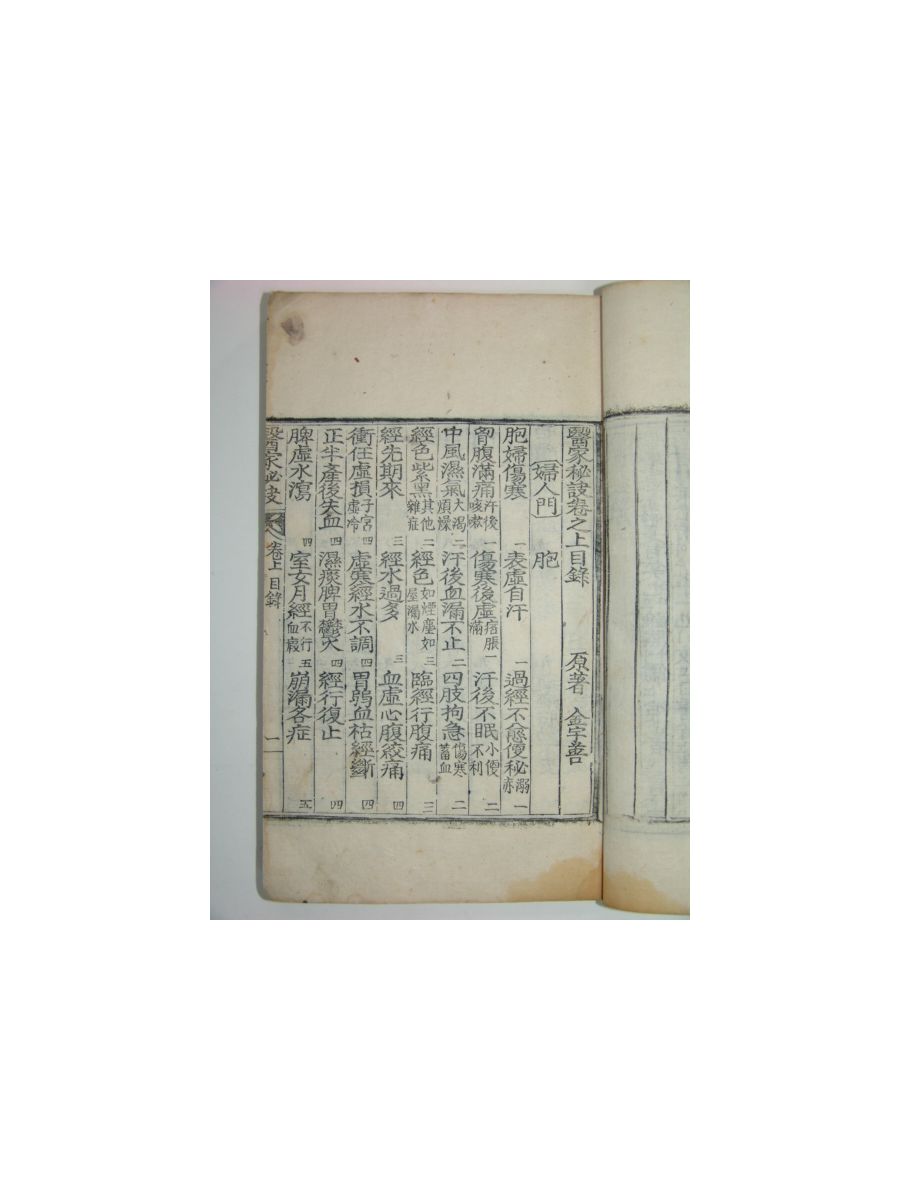 醫家秘訣卷之上目錄 原著 金宇善
婦人門 胞
胞婦傷寒 一 表虛自汗 一 過經不愈便秘溺赤 一
胷腹滿痛汗後咳嗽 一 傷寒後虛痞脹滿 一 汗後不眠小便不利 二
中風濕氣大渴煩燥 二 汗後血漏不止 二 四肢拘急傷寒蓄血 二
經色紫黑其他雜症 二 經色如煙塵如屋漏水 三 臨經行腹痛 三
經先期來 三 經水過多 三 血虛心腹絞痛 四
衝任虛損子宮虛冷 四 虛寒經水不調 四 胃弱血枯經斷 四
正半產後失血 四 濕痰脾胃鬱火 四 經行復止 四
脾虛水瀉 四 室女月經不行血瘕 五 崩漏各症 五
醫家必 卷上 目錄 一